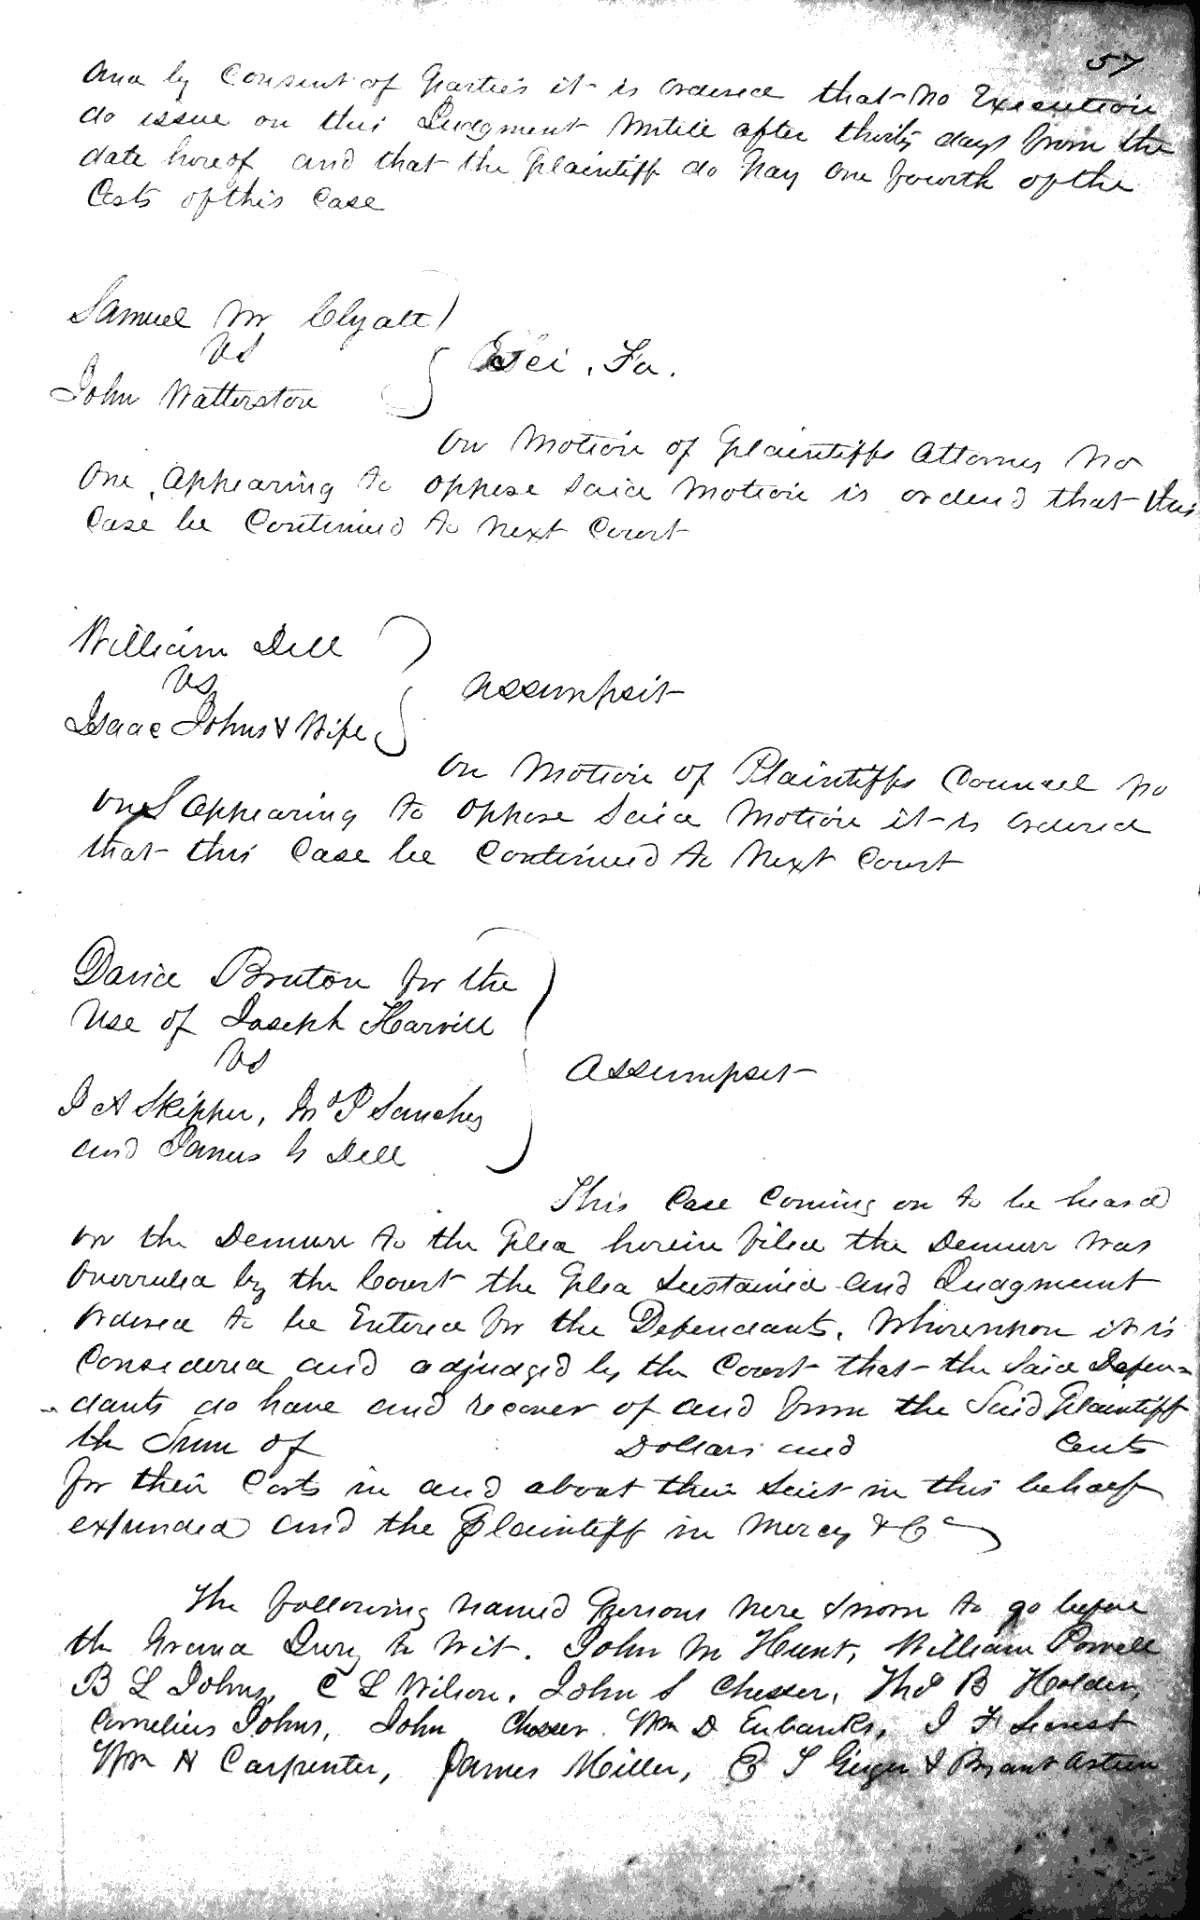 57
And by Consent of Parties it is ordered that No Execution
do issue on this Judgment Untill after thirty days from the
date hereof and that the Plaintiff do Pay One fourth of the
Costs of this Case
Samuel M Clyatt
Vs
Sci. Fa.
John Watterston
On Motion of Plaintiffs Attorney No
One Appearing to oppose Said Motion is ordered that this
Case be Continued to Next Court
William Dell
Vs
Assumpsit
Isaac Johns & Wife
On Motion of Plaintiffs Counsel No
one Appearing to oppose Said Motion it is Ordered
that this Case be Continued to Next Court
David Bruton for the
Use of Joseph Harvill
Vs
Assumpsit
J A Skipper, Sanches
and James G Dell
This Case Coming on to be heard
on the Demurr to the Plea herein filed the Demurr Was
Overruled by the Court the Plea Sustained and Judgment
Ordered to be Entered for the Defendants. Whereupon it is
Considered and adjudged by the Court that the Said Defen-
dants do have and recover of and from the Said Plaintiff
the Sum of Dollars and Cents
for their Costs in and about their Suit in this behalf
expended and the Plaintiff in Mercy & C
The following Named Persons Were Sworn to go before
the Grand Jury to Wit. John M Hunt, William Powell
B L Johns, C L Wilson, John S Chesser, Thos B Holder,
Cornelius Johns, John Chesser. Wm D Eubanks, J F
Wm H Carpenter, James Miller, E S Geiger & Bryant